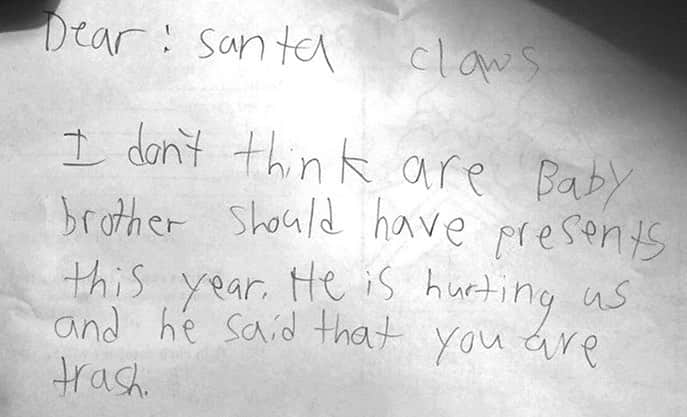 Dear: santa claws
I don't think are Baby
brother should have presents
this year. He is hurting us
and he said that you are
trash.